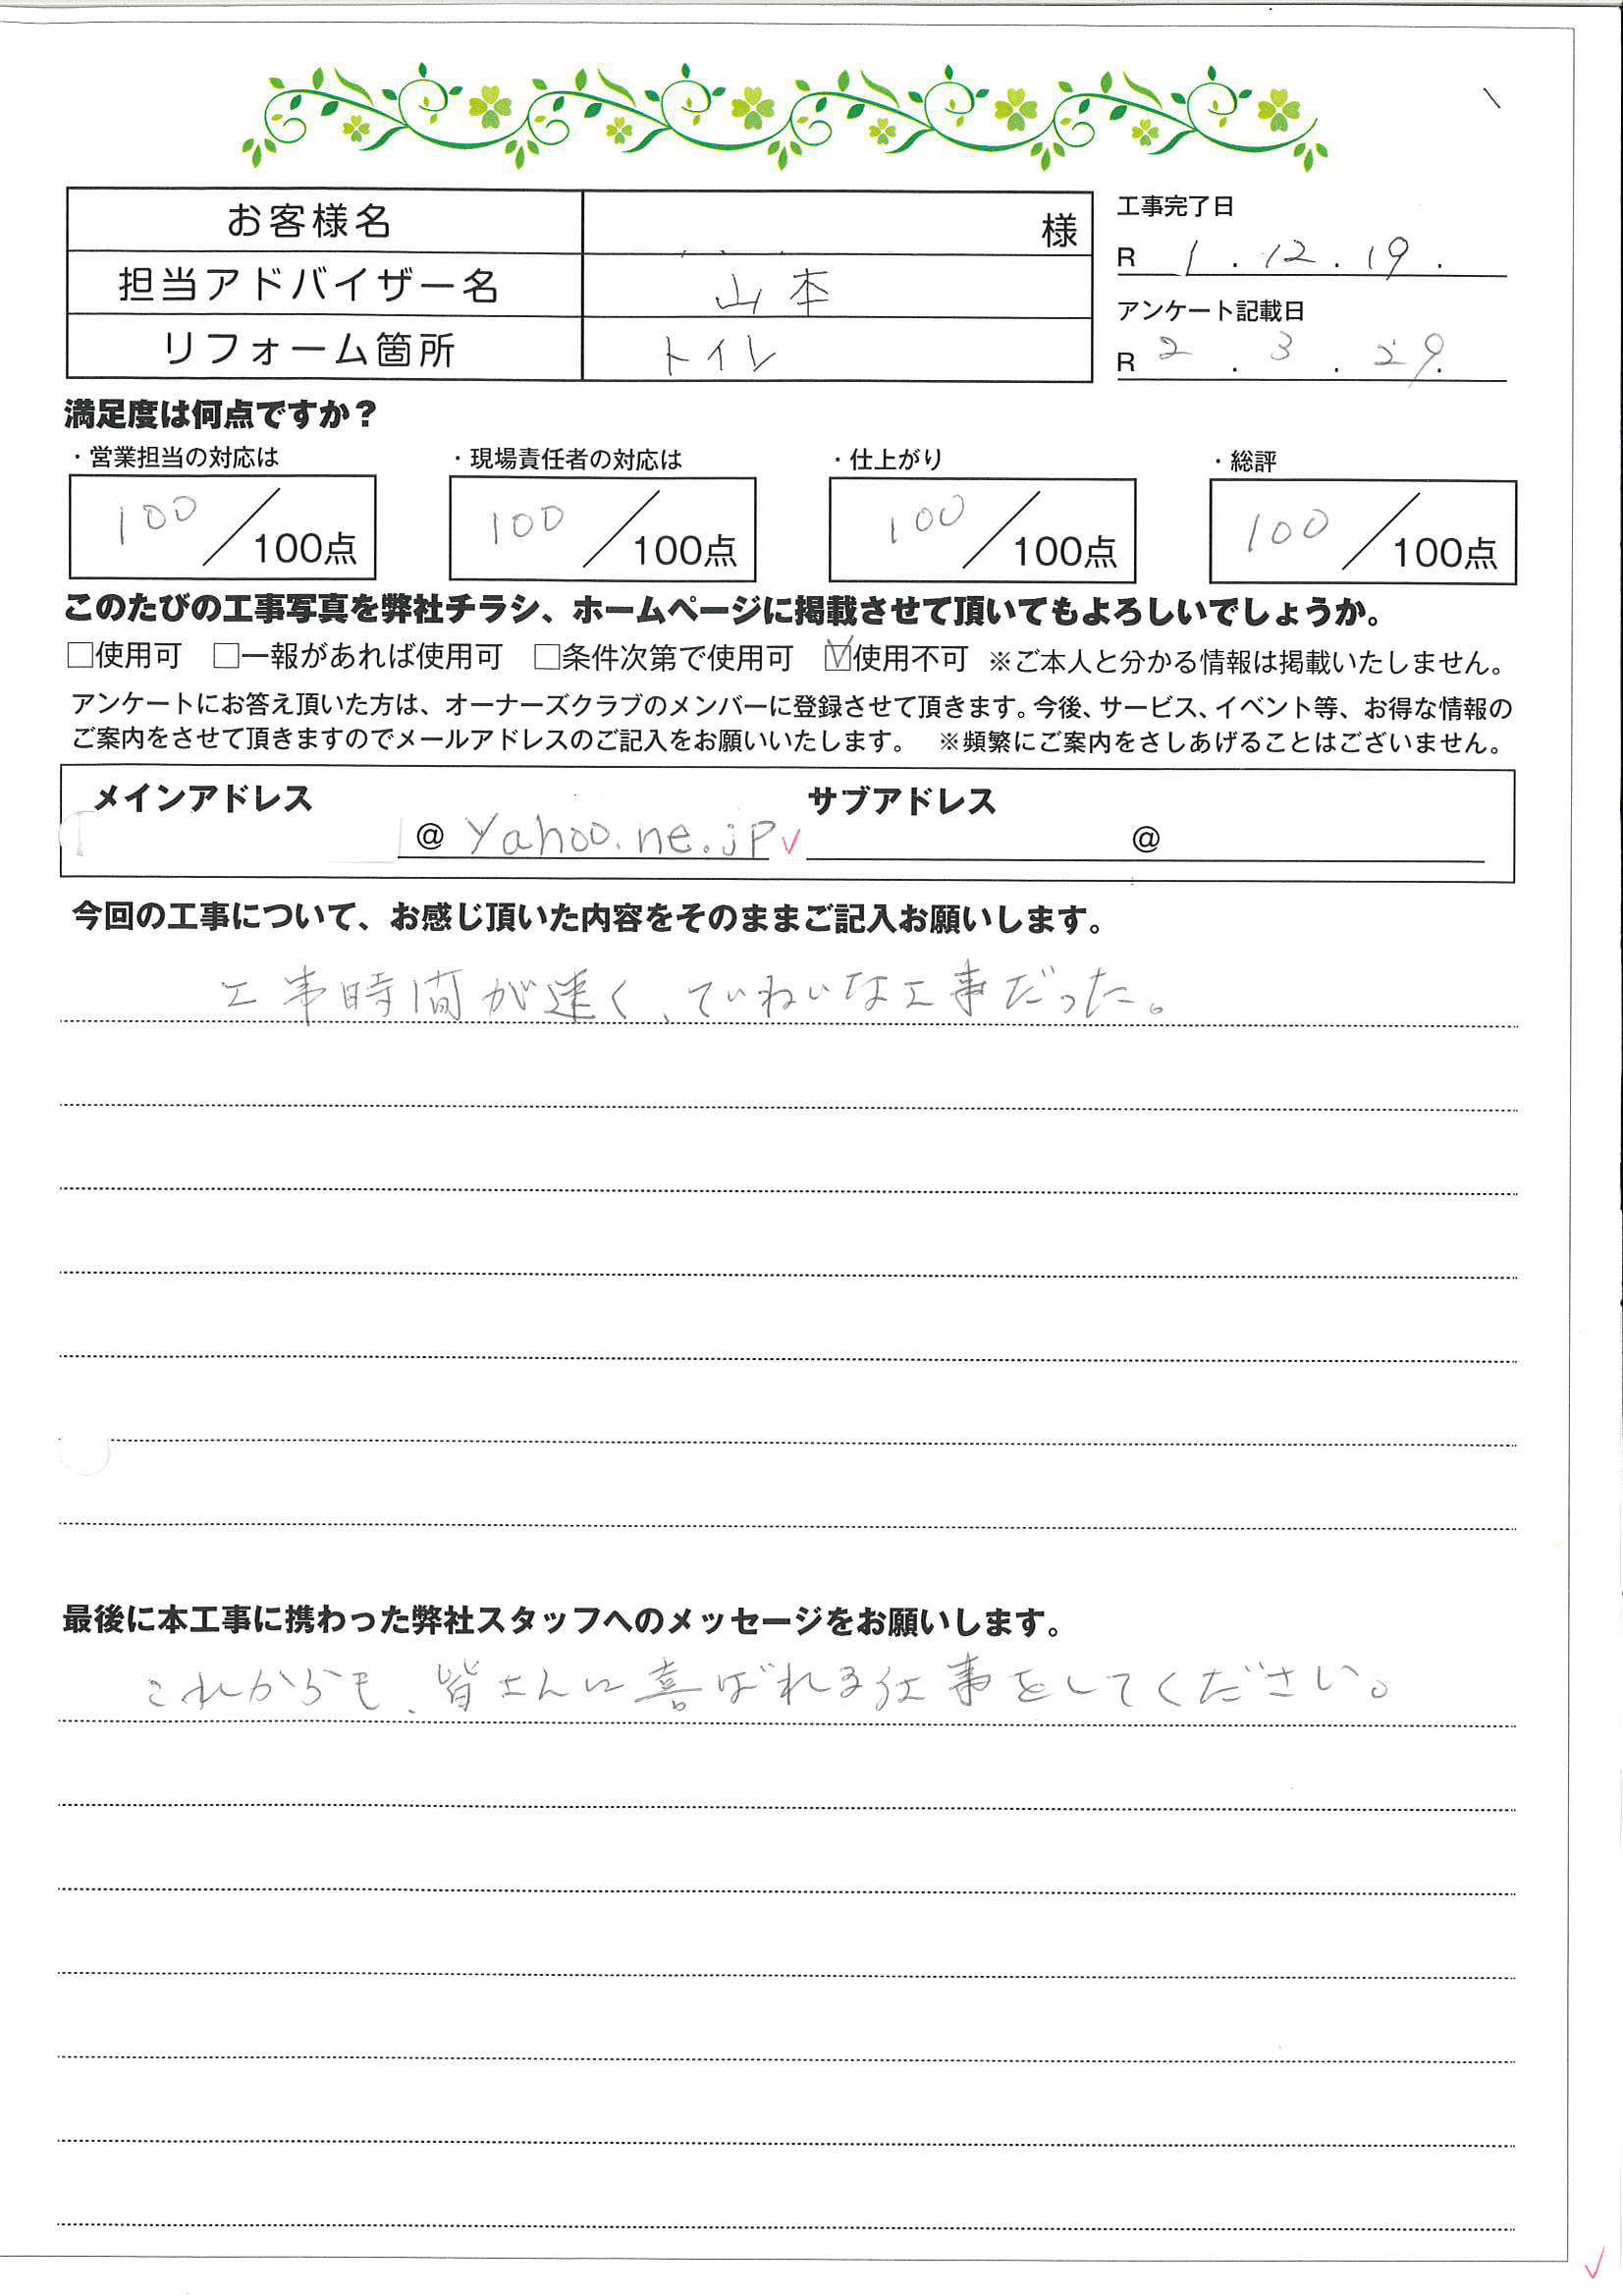 お客様名 様
担当アドバイザー名 山本
リフォーム箇所 トイレ
工事完了日
R 1 . 12 . 19 .
アンケート記載日
R 2 . 3 . 29 .
満足度は何点ですか？
・営業担当の対応は ・現場責任者の対応は ・仕上がり ・総評
100／100点 100／100点 100／100点 100／100点
このたびの工事写真を弊社チラシ、ホームページに掲載させて頂いてもよろしいでしょうか。
□使用可 □一報があれば使用可 □条件次第で使用可 ☑使用不可 ※ご本人と分かる情報は掲載いたしません。
アンケートにお答え頂いた方は、オーナーズクラブのメンバーに登録させて頂きます。今後、サービス、イベント等、お得な情報の
ご案内をさせて頂きますのでメールアドレスのご記入をお願いいたします。 ※頻繁にご案内をさしあげることはございません。
メインアドレス サブアドレス
@ yahoo.ne.jp @
今回の工事について、お感じ頂いた内容をそのままご記入お願いします。
工事時間が速く、ていねいな工事だった。
最後に本工事に携わった弊社スタッフへのメッセージをお願いします。
これからも、皆さんに喜ばれる仕事をしてください。